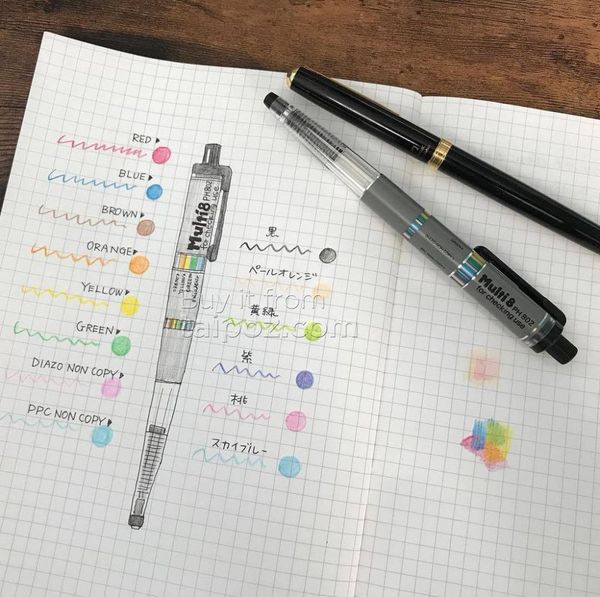 RED
BLUE
BROWN
ORANGE
YELLOW
GREEN
DIAZO NON COPY
PPC NON COPY
Multi8 PH802
for checking use
黒
ペールオレンジ
黄緑
紫
桃
スカイブルー
buy it from
taipoz.com
Multi 8 PH 802
for checking use